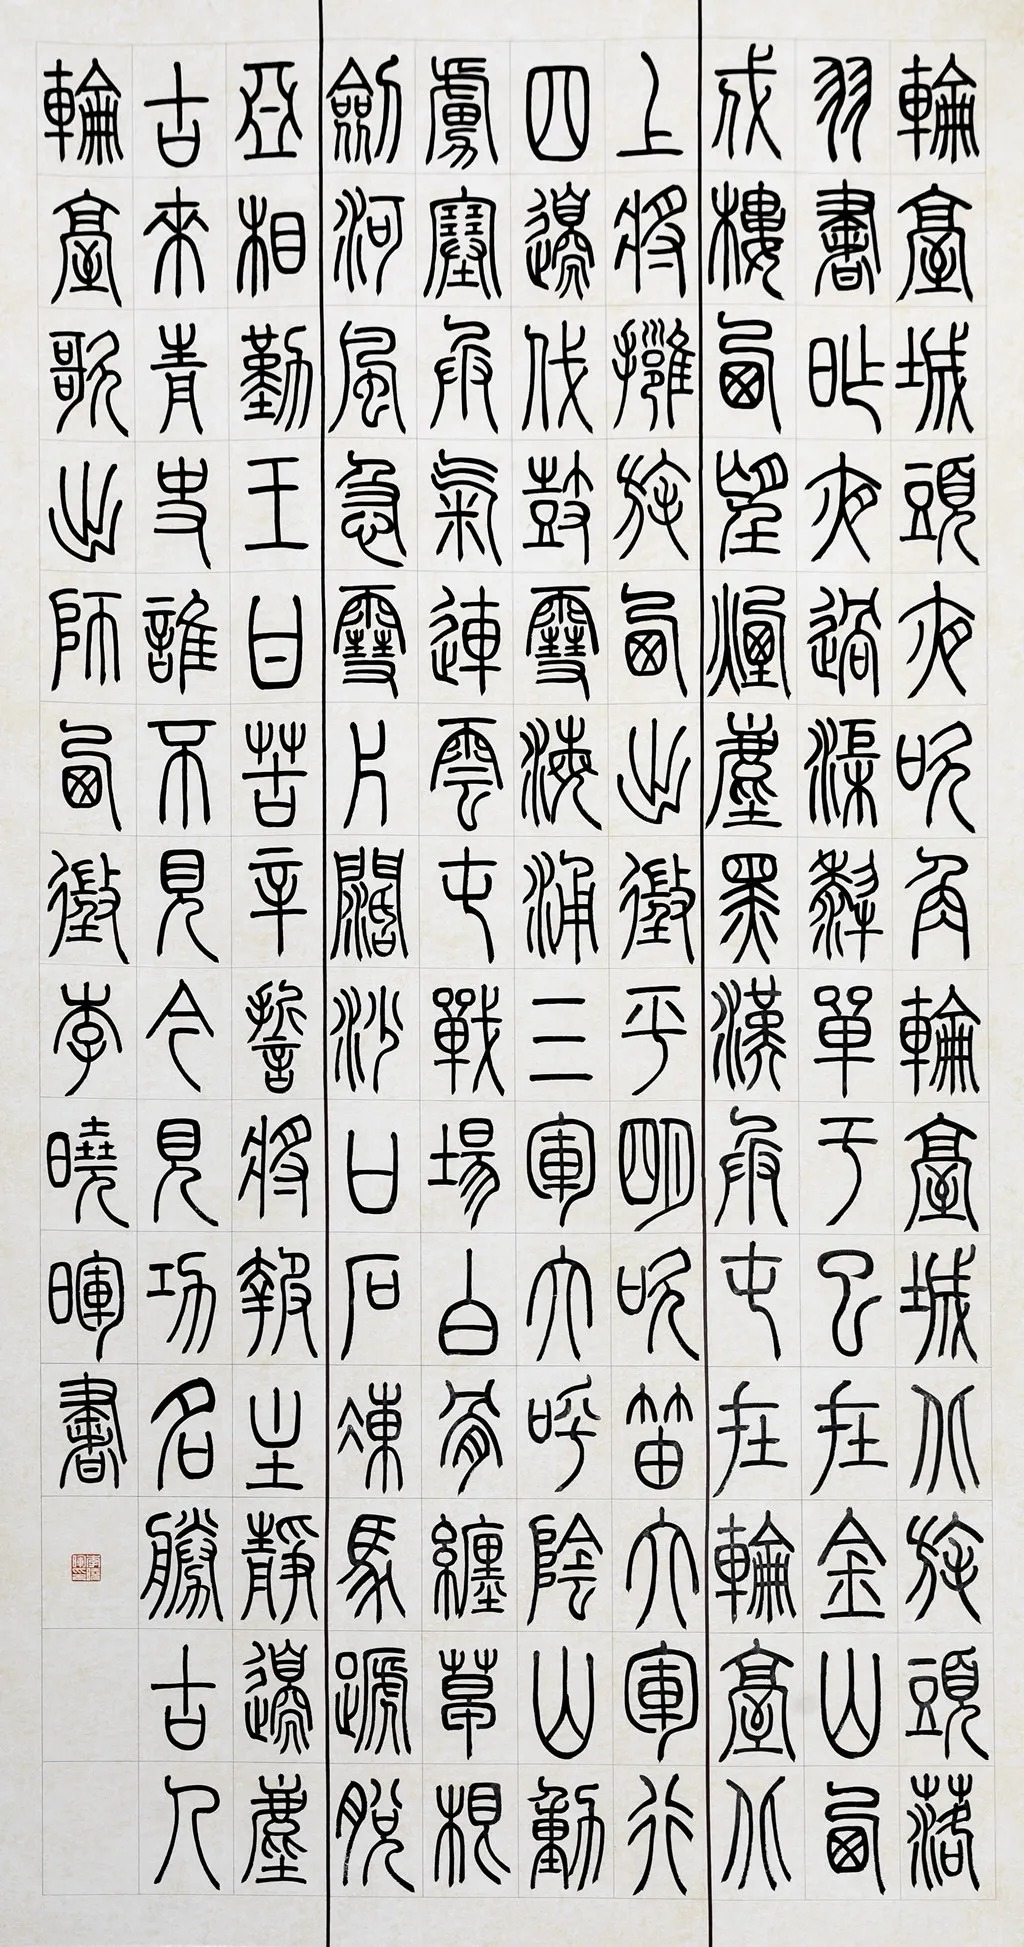 輪臺城頭夜吹角輪臺城北旄頭落
羽書昨夜過渠犂單于已在金山西
戍樓西望煙塵黑漢兵屯在輪臺北
上將擁旄西出征平明吹笛大軍行
四邊伐鼓雪海涌三軍大呼陰山動
虜塞兵氣連雲屯戰場白骨纏草根
劍河風急雪片闊沙口石凍馬蹏脫
亞相勤王甘苦辛誓將報主靜邊塵
古來青史誰不見今見功名勝古人
輪臺歌出師西征李曉暉書